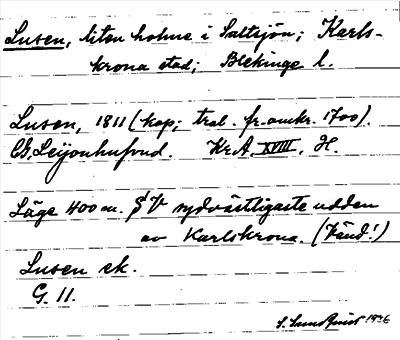 Lusen, liten holme i Saltsjön; Karls-
krona stad; Blekinge l.
Lusen, 1811 (kop; tral. fr. omkr. 1700).
C. G. Leijonhufvud. Kr.A. XVIII, H.
Läge 400 m. SV sydvästligaste udden
av Karlskrona. (Vänd!)
Lusen ek.
G. 11.
S. Sundquist 1936